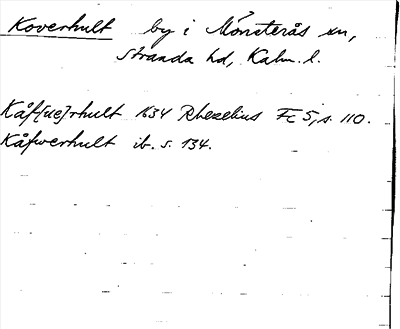 Koverhult by i Mönsterås sn,
Stranda hd, Kalm. l.
Kåf[ue]rhult 1634 Rhezelius Fc 5, s. 110.
Kåfwerhult ib. s. 134.